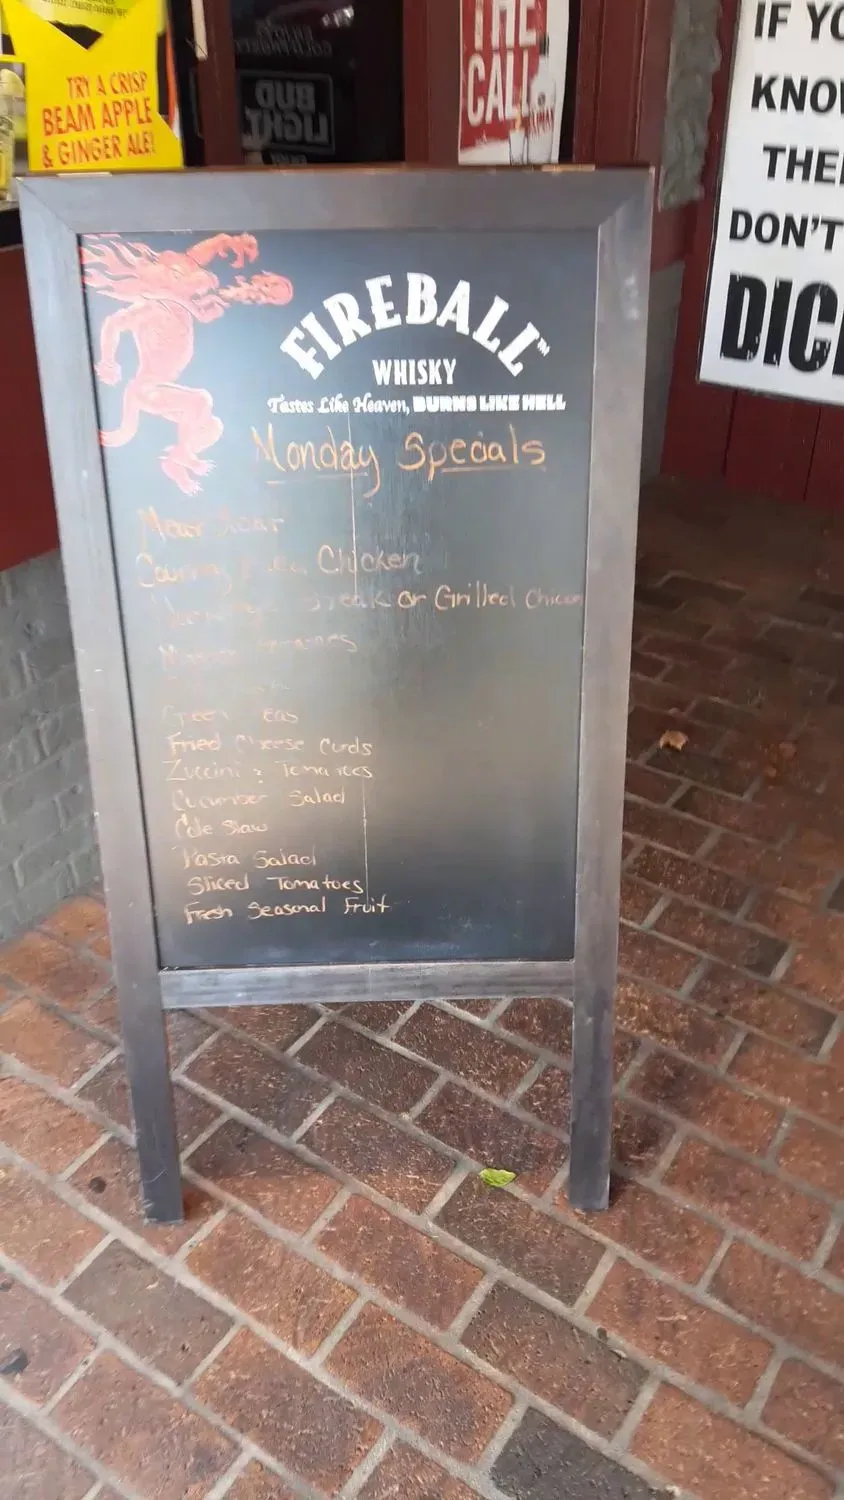 TRY A CRISP
BEAM APPLE
& GINGER ALE!
BUD
LIGHT
THE
CALL
IF YO
KNOW
THE
DON'T
DIC
FIREBALL™
WHISKY
Tastes Like Heaven, BURNS LIKE HELL
Monday Specials
Meat Loaf
Chicken
Steak or Grilled Chicken
Green Peas
Fried Cheese Curds
Zuccini & Tomatoes
Cucumber Salad
Cole Slaw
Pasta Salad
Sliced Tomatoes
Fresh Seasonal Fruit